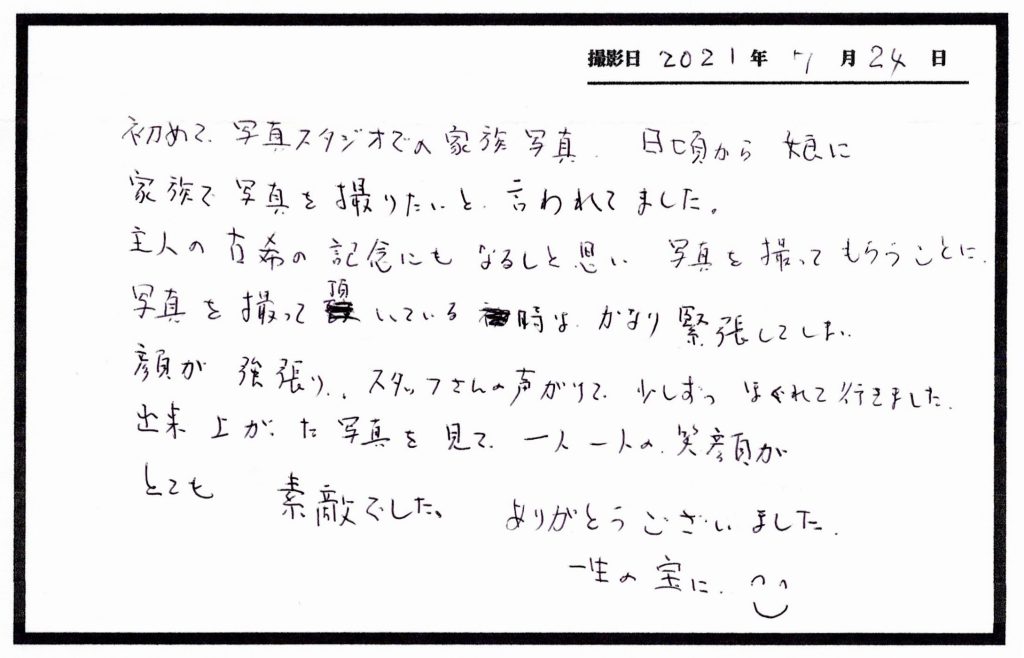 撮影日 2021年 7月 24日
初めて、写真スタジオでの家族写真、日頃から 娘に
家族で写真を撮りたいと、言われてました。
主人の古希の記念にもなるしと思い 写真を撮ってもらうことに、
写真を撮って頂いている時は、かなり緊張してしまい
顔が強張り、スタッフさんの声がけで、少しずつほぐれて行きました。
出来上がった写真を見て、一人一人の、笑顔が
とても 素敵でした。ありがとうございました。
一生の宝に、